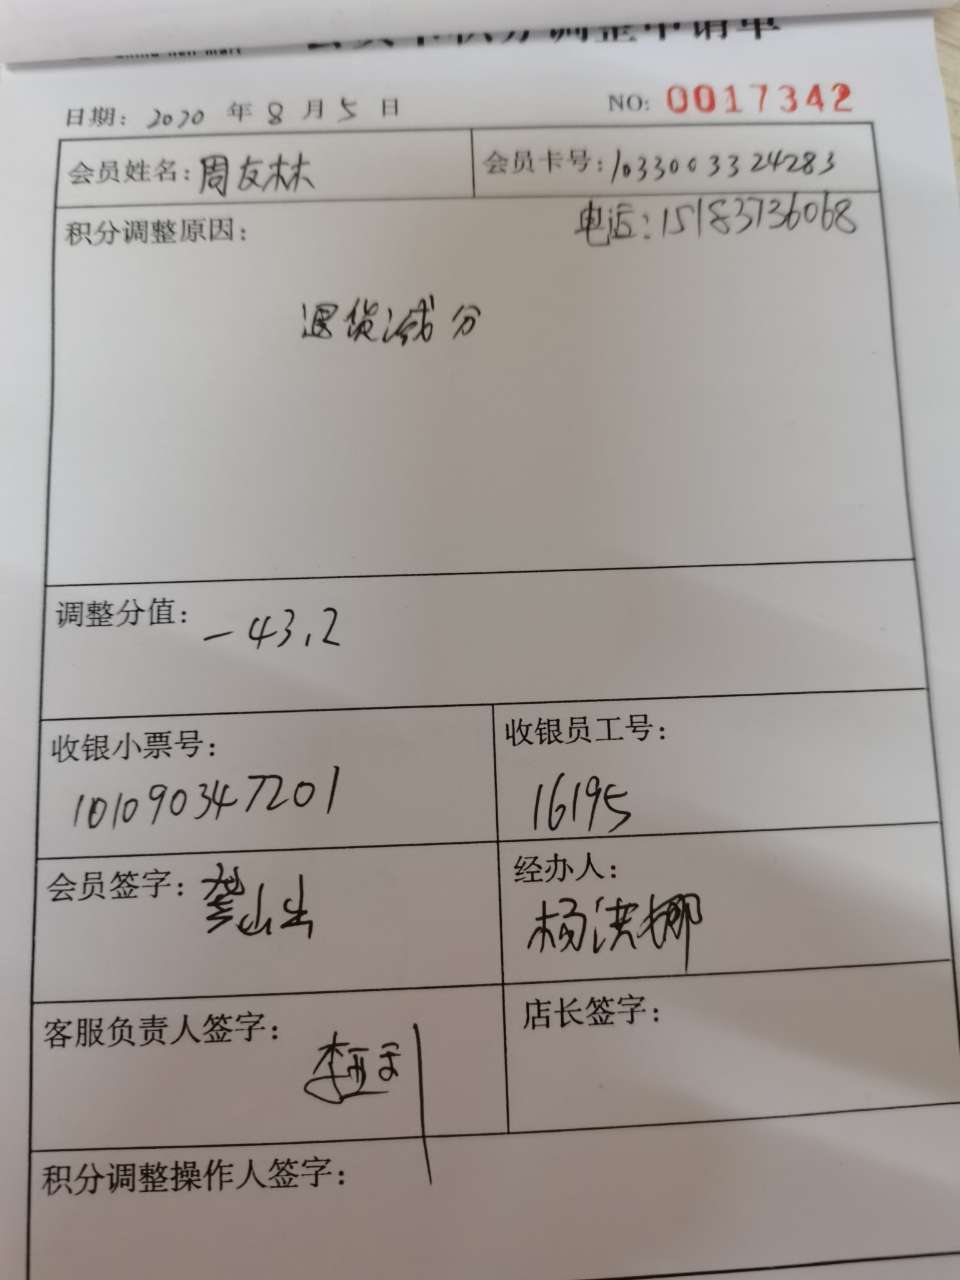 日期: 2020 年 8 月 5 日 NO: 0017342
会员姓名: 周友林 会员卡号: 1033003324283
积分调整原因: 电话: 15183736068
退货减分
调整分值: -43.2
收银小票号: 收银员工号:
101090347201 16195
会员签字: 经办人:
杨洪娜
客服负责人签字: 店长签字:
积分调整操作人签字: